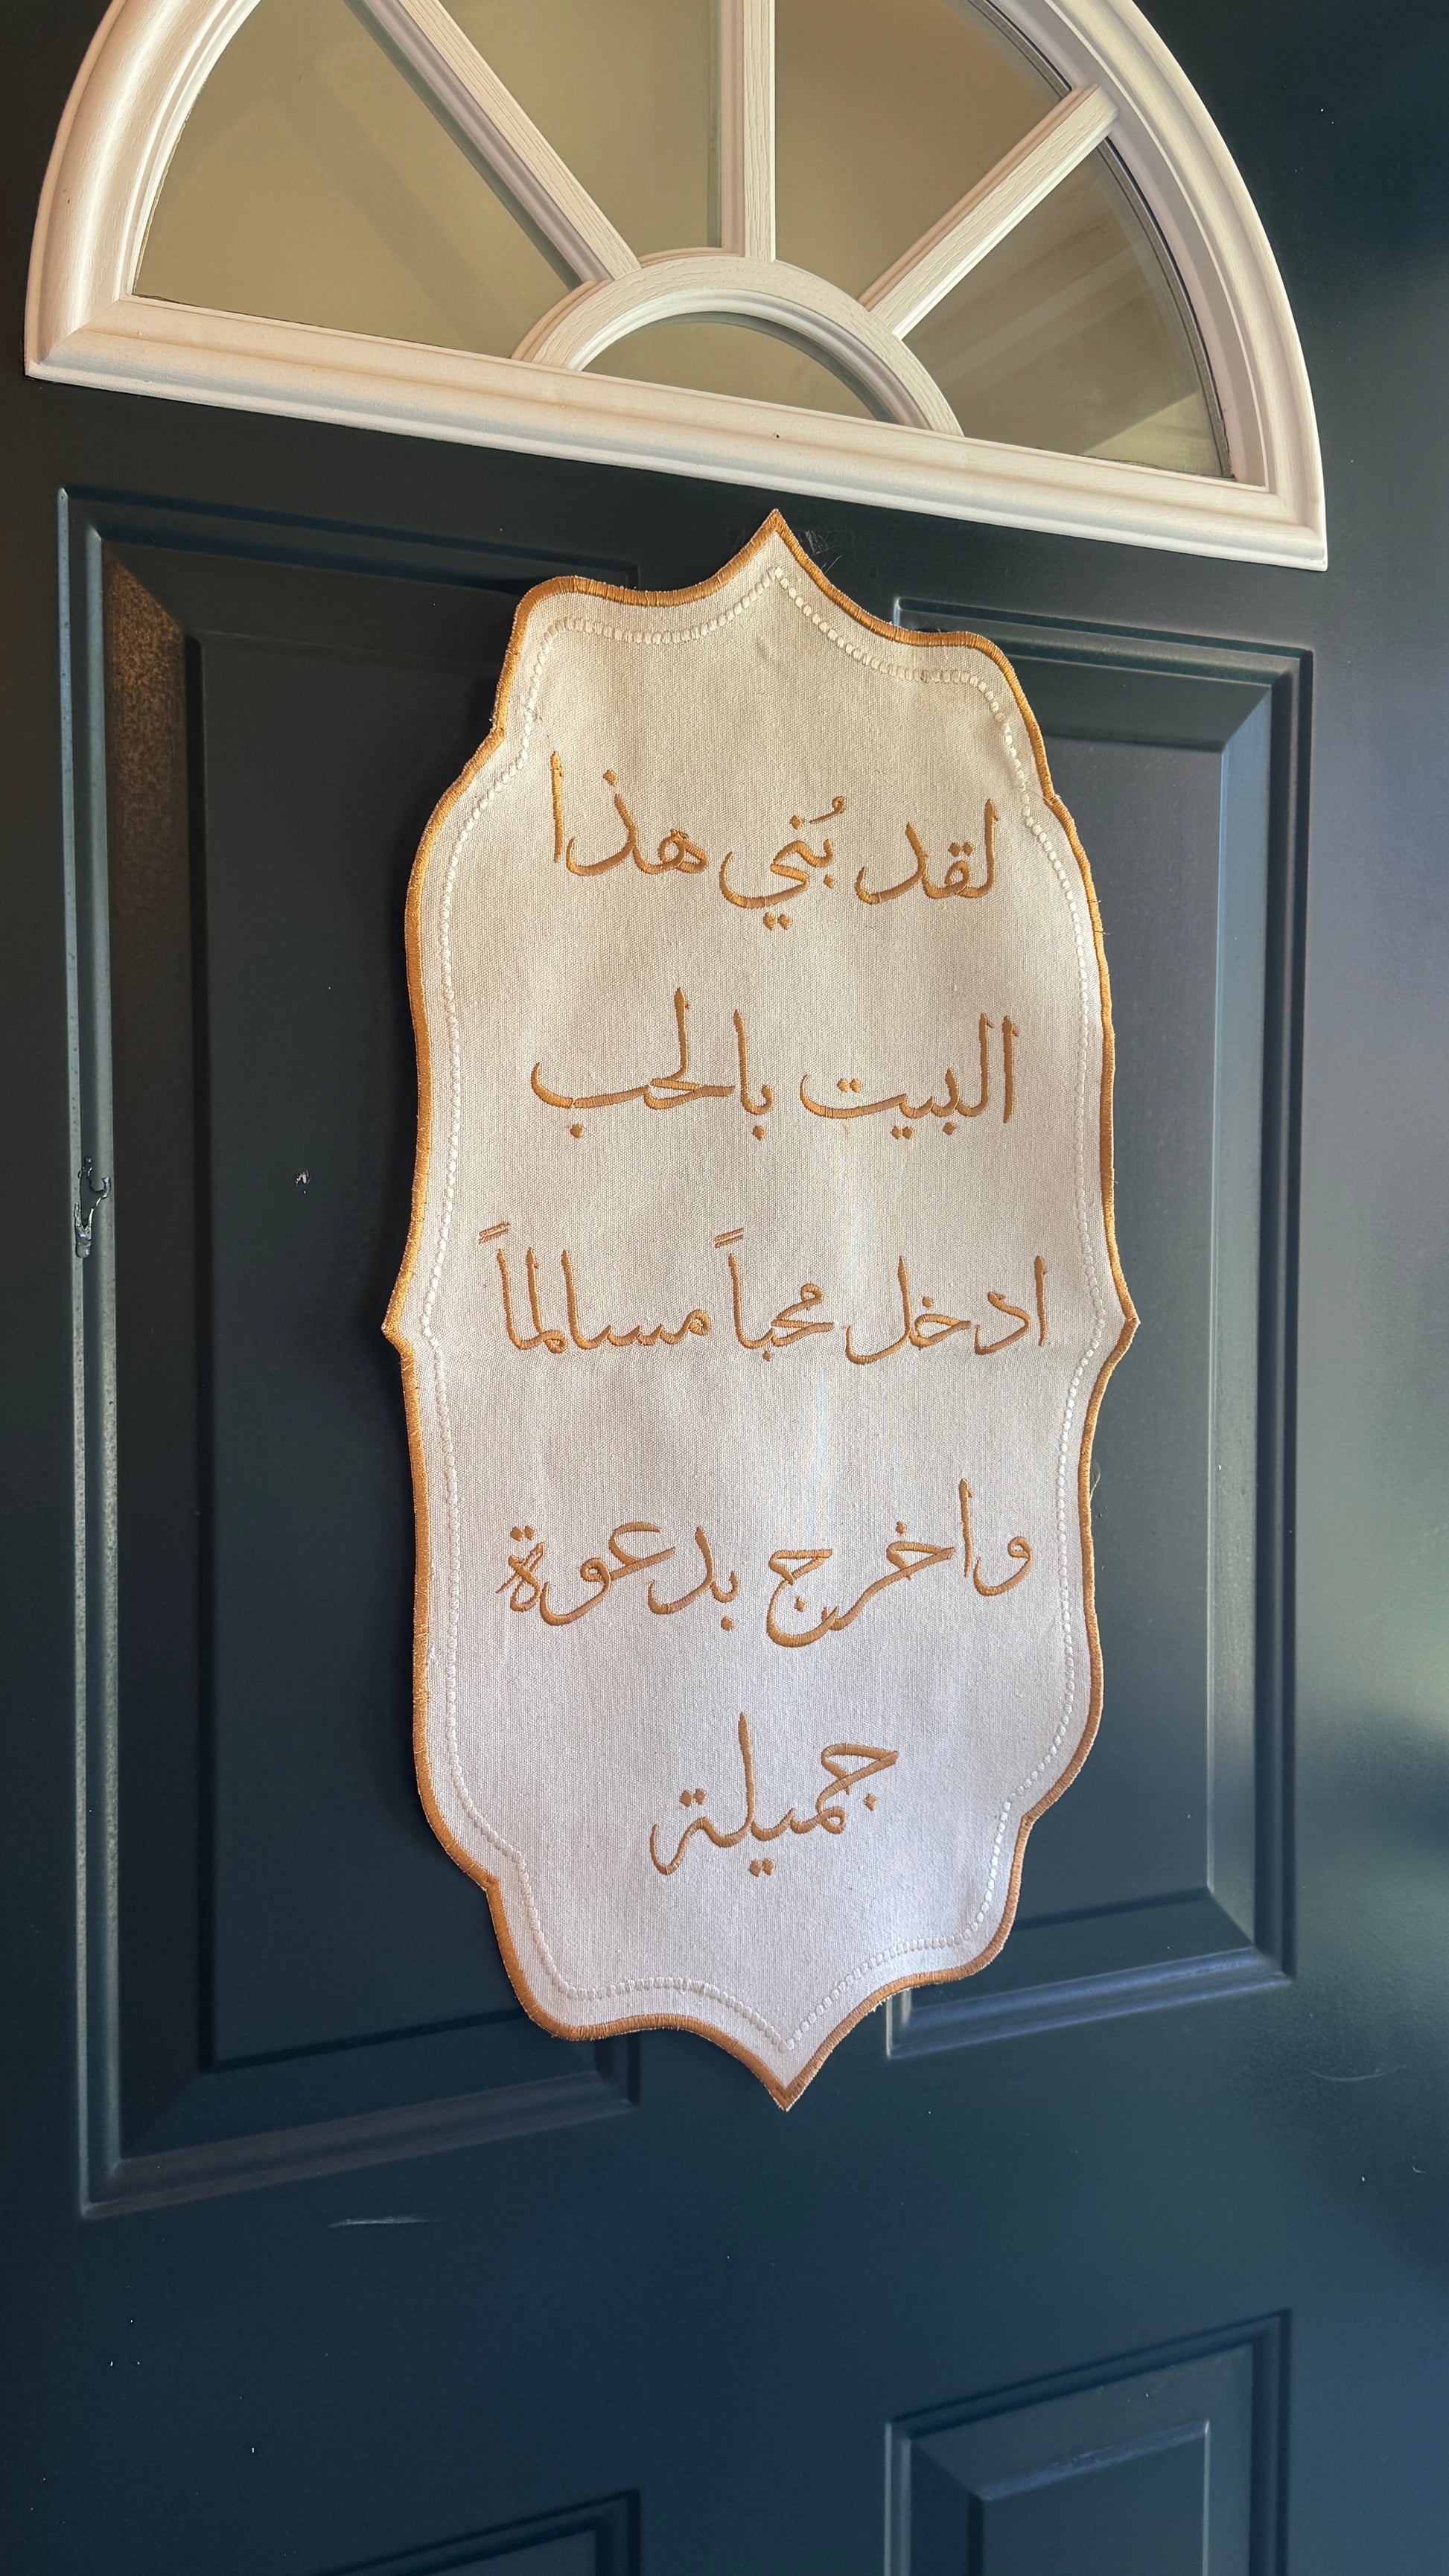 لقد بُني هذا
البيت بالحب
ادخل محباً مسالماً
واخرج بدعوة
جميلة